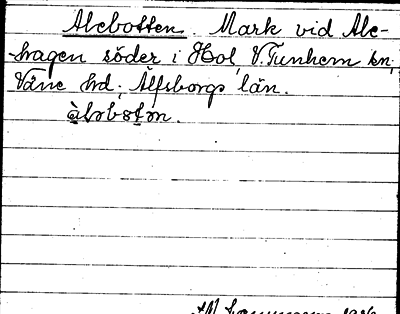 Alebotten. Mark vid Ale-
hagen söder i Hol, V. Tunhem sn,
Väne hd, Älfsborgs län.